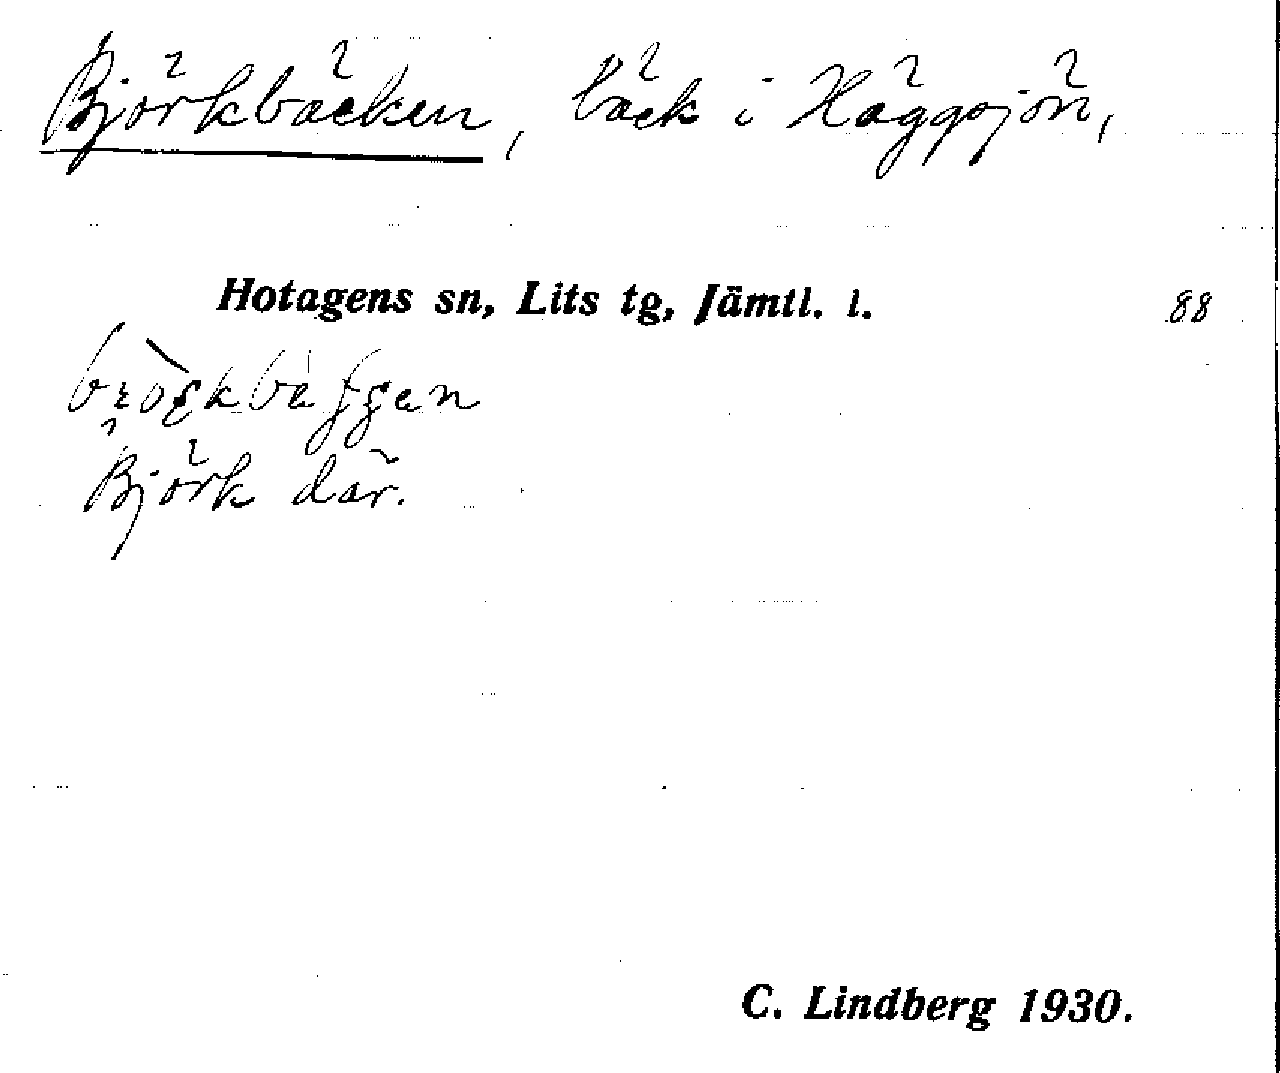 Björkbäcken, bäck i Häggsjön,
Hotagens sn, Lits tg, Jämtl. l. 88
Björk där.
C. Lindberg 1930.